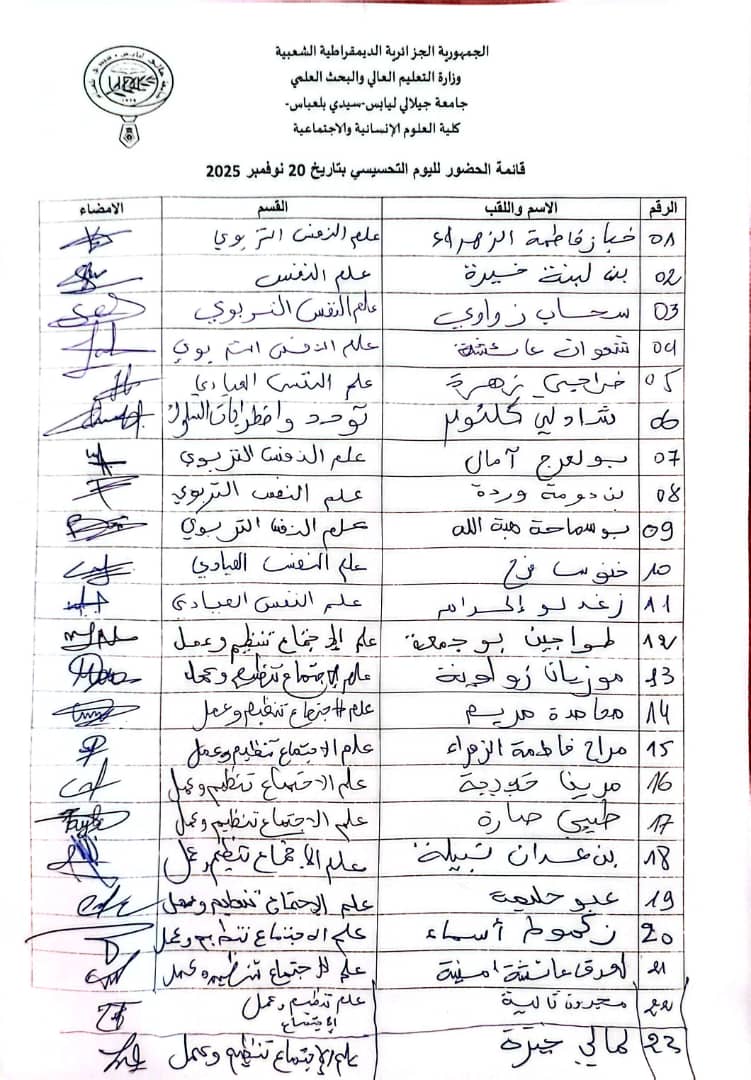 الجمهورية الجزائرية الديمقراطية الشعبية
وزارة التعليم العالي والبحث العلمي
جامعة جيلالي ليابس-سيدي بلعباس-
كلية العلوم الإنسانية والاجتماعية
قائمة الحضور لليوم التحسيسي بتاريخ 20 نوفمبر 2025
الرقم الاسم واللقب القسم الامضاء
01 خباز فاطمة الزهراء علم النفس التربوي
02 بن لبنة خيرة علم النفس
03 سحاب زواوي علم النفس التربوي
04 شعوان عائشة علم النفس التربوي
05 خراجي زهرة علم النفس العيادي
06 شادلي كلثوم توحد واضطرابات السلوك
07 بولعرج آمال علم النفس التربوي
08 بن دومة وردة علم النفس التربوي
09 بوسماحة هبة الله علم النفس التربوي
10 علم النفس العيادي
11 علم النفس العيادي
12 طواجين بوجمعة علم الإجتماع تنظيم وعمل
13 علم الإجتماع تنظيم وعمل
14 مريم علم الاجتماع تنظيم وعمل
15 مراح فاطمة الزهراء علم الاجتماع تنظيم وعمل
16 خديجة علم الاجتماع تنظيم وعمل
17 طيبي صارة علم الاجتماع تنظيم وعمل
18 بن عدان نبيلة علم الاجتماع تنظيم وعمل
19 عبو حليمة علم الاجتماع تنظيم وعمل
20 زكموط أسماء علم الاجتماع تنظيم وعمل
21 عائشة امينة علم الاجتماع تنظيم وعمل
22 علم تنظيم وعمل
الإجتماع
23 لمالي علم الإجتماع تنظيم وعمل